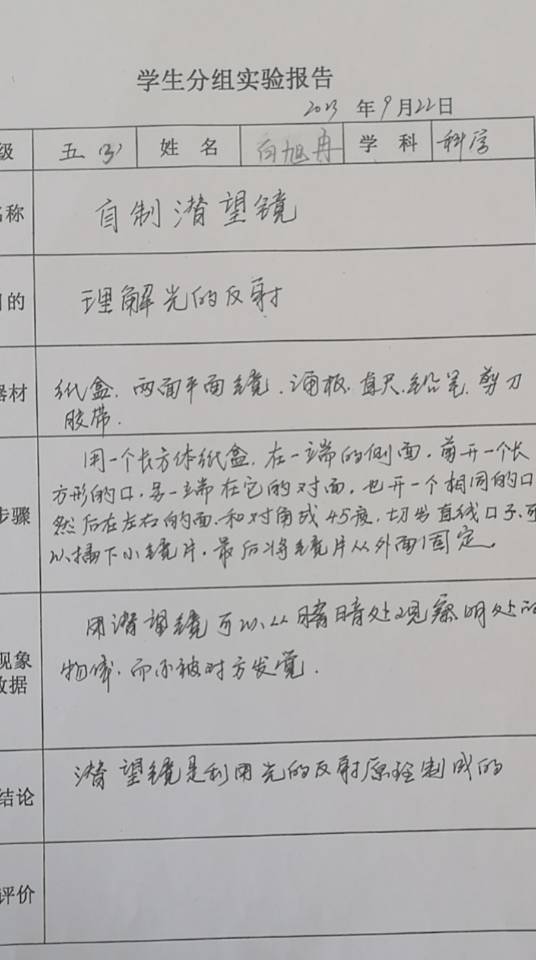 学生分组实验报告
2023 年 9 月 22 日
级 五.(3) 姓 名 向旭冉 学 科 科学
名称 自制潜望镜
目的 理解光的反射
器材 纸盒.两面平面镜.涌板.直尺.铅笔.剪刀
胶带.
用一个长方体纸盒.在一端的侧面.剪开一个长
方形的口.另一端在它的对面.也开一个相同的口
步骤 然后在左右的面.和对角成45度.切出直线口子.可
以插下小镜片.最后将镜片从外面固定。
用潜望镜可以从暗处观察明处的
现象
数据 物体.而不被对方发觉.
结论 潜望镜是利用光的反射原理制成的
评价